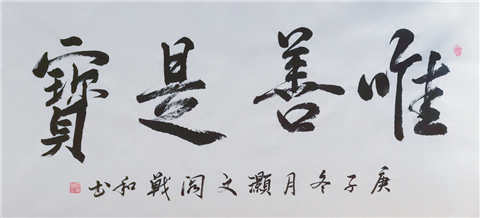 唯善是寶
庚子冬月灝文阁戰和书